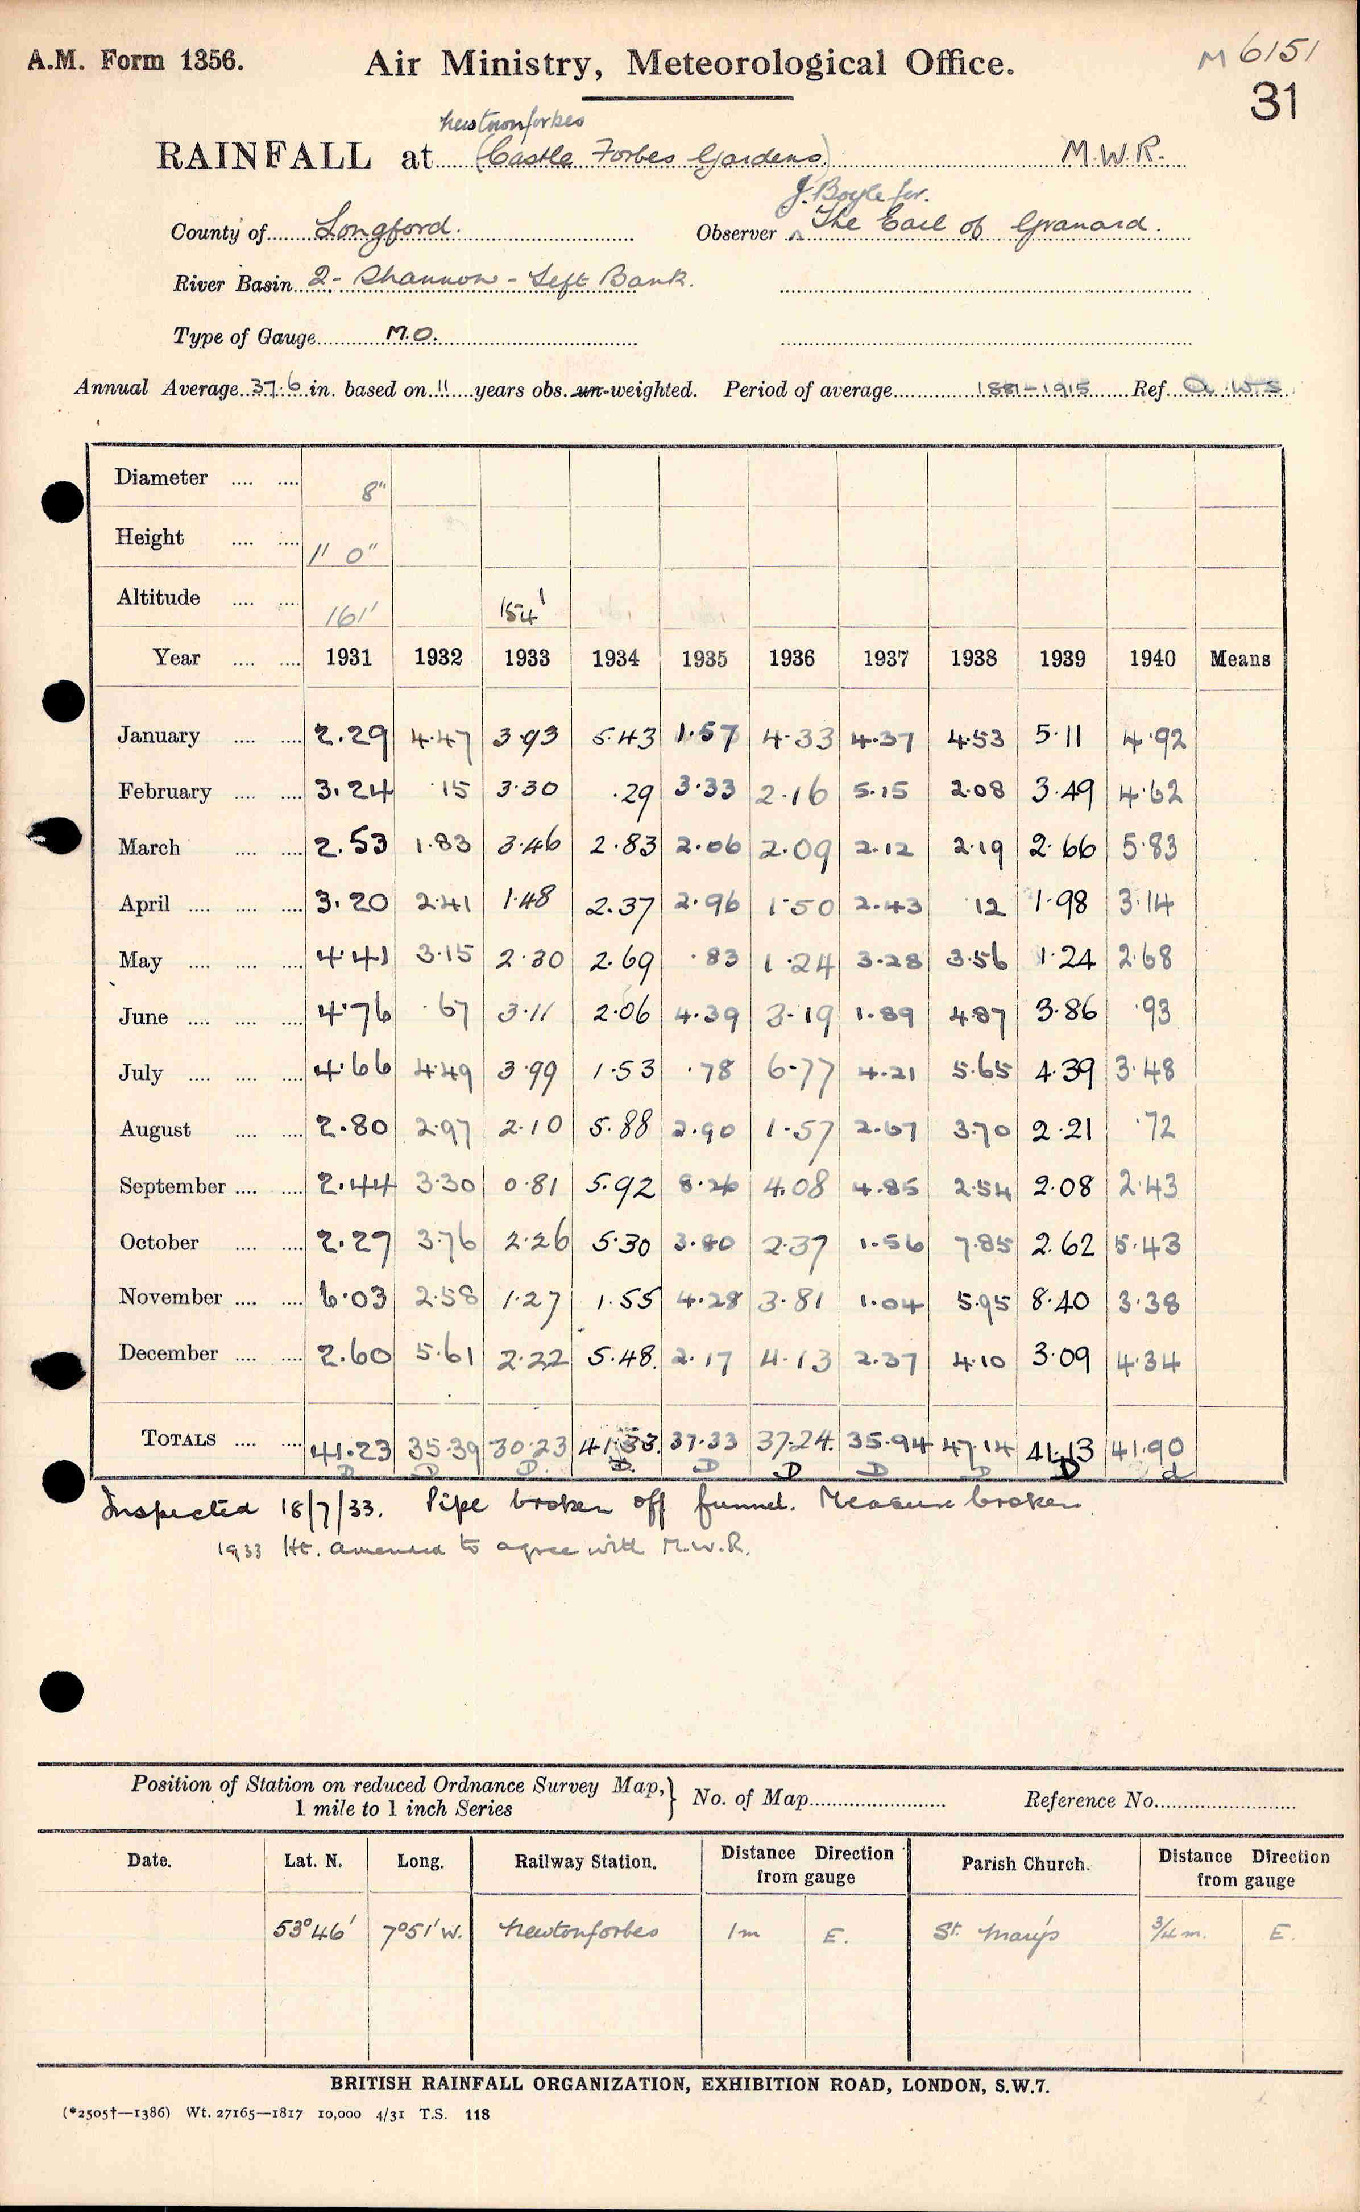 A.M. Form 1356. Air Ministry, Meteorological Office. M 6151
31
Newtownforbes
RAINFALL at (Castle Forbes Gardens) M.W.R.
J. Boyle for.
County of Longford. Observer The Earl of Granard.
River Basin 2 - Shannon - Left Bank.
Type of Gauge M.O.
Annual Average 37.6 in. based on 11 years obs. un-weighted. Period of average 1881-1915 Ref.
Diameter .... .... 8"
Height .... .... 1' 0"
Altitude .... .... 161' 154'
Year .... .... 1931 1932 1933 1934 1935 1936 1937 1938 1939 1940 Means
January .... .... 2.29 4.47 3.93 5.43 1.57 4.33 4.37 4.53 5.11 4.92
February .... .... 3.24 .15 3.30 .29 3.33 2.16 5.15 2.08 3.49 4.62
March .... .... 2.53 1.83 3.46 2.83 2.06 2.09 2.12 2.19 2.66 5.83
April .... .... .... 3.20 2.41 1.48 2.37 2.96 1.50 2.43 .12 1.98 3.14
May .... .... .... 4.41 3.15 2.30 2.69 .83 1.24 3.28 3.56 1.24 2.68
June .... .... .... 4.76 .67 3.11 2.06 4.39 3.19 1.89 4.87 3.86 .93
July .... .... .... 4.66 4.49 3.99 1.53 .78 6.77 4.21 5.65 4.39 3.48
August .... .... 2.80 2.97 2.10 5.88 2.90 1.57 2.67 3.70 2.21 .72
September .... .... 2.44 3.30 0.81 5.92 8.26 4.08 4.85 2.54 2.08 2.43
October .... .... 2.27 3.76 2.26 5.30 3.80 2.37 1.56 7.85 2.62 5.43
November .... .... 6.03 2.58 1.27 1.55 4.28 3.81 1.04 5.95 8.40 3.38
December .... .... 2.60 5.61 2.22 5.48 2.17 4.13 2.37 4.10 3.09 4.34
TOTALS .... .... 41.23 35.39 30.23 41.33. 37.33 37.24. 35.94 47.14 41.13 41.90
D D D. D. D D D D D d
Inspected 18/7/33. Pipe broken off funnel. Measure broken
1933 Ht. amended to agree with M.W.R.
Position of Station on reduced Ordnance Survey Map, } No. of Map Reference No.
1 mile to 1 inch Series
Date. Lat. N. Long. Railway Station. Distance Direction from gauge Parish Church. Distance Direction from gauge
53°46' 7°51' W. Newtonforbes 1m E. St. Mary's 3/4 m. E.
BRITISH RAINFALL ORGANIZATION, EXHIBITION ROAD, LONDON, S.W.7.
(*2505†—1386) Wt. 27165—1817 10,000 4/31 T.S. 118